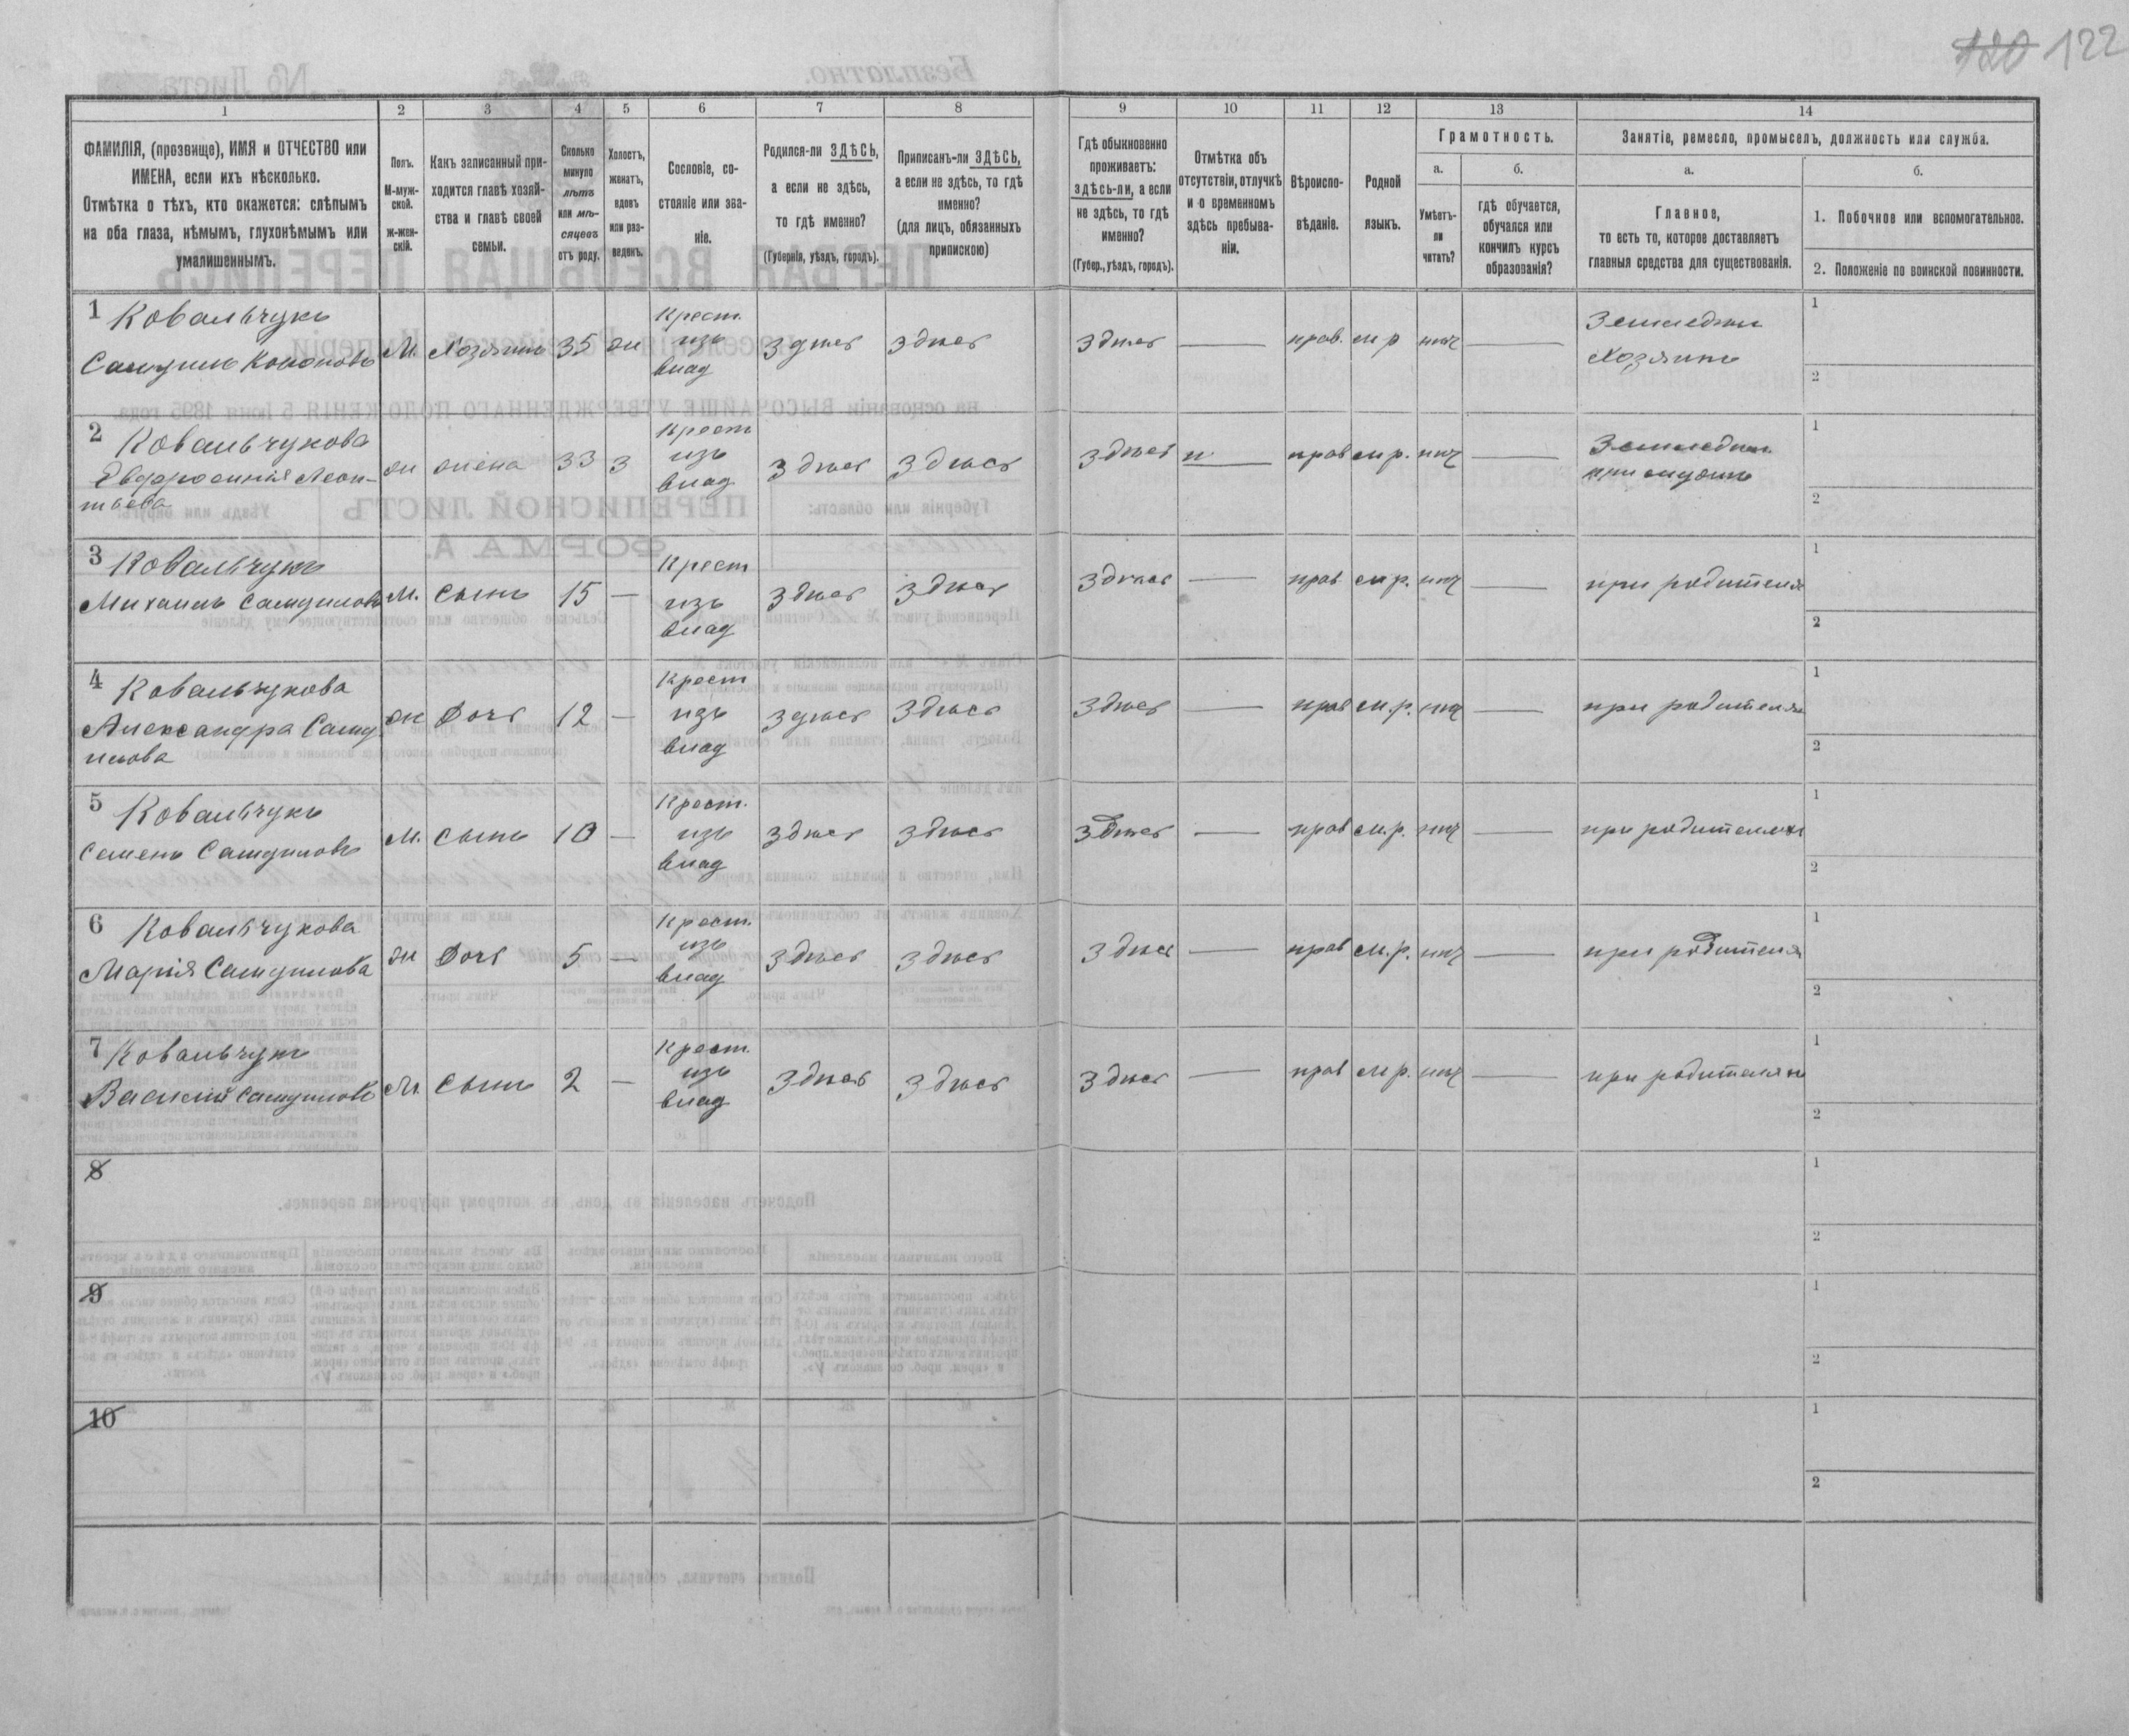 120 122
1 2 3 4 5 6 7 8 9 10 11 12 13 14
ФАМИЛІЯ, (прозвище), ИМЯ и ОТЧЕСТВО или
ИМЕНА, если ихъ нѣсколько.
Отмѣтка о тѣхъ, кто окажется: слѣпымъ
на оба глаза, нѣмымъ, глухонѣмымъ или
умалишеннымъ.
Полъ.
М-муж-
ской.
Ж-жен-
скій.
Какъ записанный при-
ходится главѣ хозяй-
ства и главѣ своей
семьи.
Сколько
минуло
лѣтъ
или мѣ-
сяцевъ
отъ роду.
Холостъ,
женатъ,
вдовъ
или раз-
веденъ.
Сословіе, со-
стояніе или зва-
ніе.
Родился-ли ЗДѢСЬ,
а если не здѣсь,
то гдѣ именно?
(Губернія, уѣздъ, городъ).
Приписанъ-ли ЗДѢСЬ,
а если не здѣсь, то гдѣ
именно?
(для лицъ, обязанныхъ
припискою)
Гдѣ обыкновенно
проживаетъ:
здѣсь-ли, а если
не здѣсь, то гдѣ
именно?
(Губер., уѣздъ, городъ).
Отмѣтка объ
отсутствіи, отлучкѣ
и о временномъ
здѣсь пребыва-
ніи.
Вѣроиспо-
вѣданіе.
Родной
языкъ.
Грамотность.
а.
Умѣетъ-
ли
читать?
б.
гдѣ обучается,
обучался или
кончилъ курсъ
образованія?
Занятіе, ремесло, промыселъ, должность или служба.
а.
Главное,
то есть то, которое доставляетъ
главныя средства для существованія.
б.
1. Побочное или вспомогательное.
2. Положеніе по воинской повинности.
1 Ковальчукъ
Самуилъ Кононовъ М. Хозяинъ 35 ж Крест. изъ влад здѣсь здѣсь здѣсь — прав. м р нѣт — Земледѣл Хозяинъ 1 2
2 Ковальчукова
Евфросинія Леон-
тьева ж жена 33 з Крест изъ влад здѣсь здѣсь здѣсь прав м р. нѣт — Земледѣл при мужѣ 1 2
3 Ковальчукъ
Михаилъ Самуиловъ М. Сынъ 15 — Крест изъ влад здѣсь здѣсь здѣсь — прав м р. нѣт — при родителя 1 2
4 Ковальчукова
Александра Самуи
илова ж Дочь 12 — Крест изъ влад здѣсь здѣсь здѣсь — прав м.р. нѣт — при родителя 1 2
5 Ковальчукъ
Семенъ Самуиловъ М. Сынъ 10 — Крест. изъ влад здѣсь здѣсь здѣсь — прав м.р. нѣт — при родителях 1 2
6 Ковальчукова
Марія Самуилова ж Дочь 5 — Крест. изъ влад здѣсь здѣсь здѣсь — прав м.р. нѣт — при родителя 1 2
7 Ковальчукъ
Василій Самуиловъ М. Сынъ 2 — Крест. изъ влад здѣсь здѣсь здѣсь — прав м р. нѣт — при родителях 1 2
8 1 2
9 1 2
10 1 2